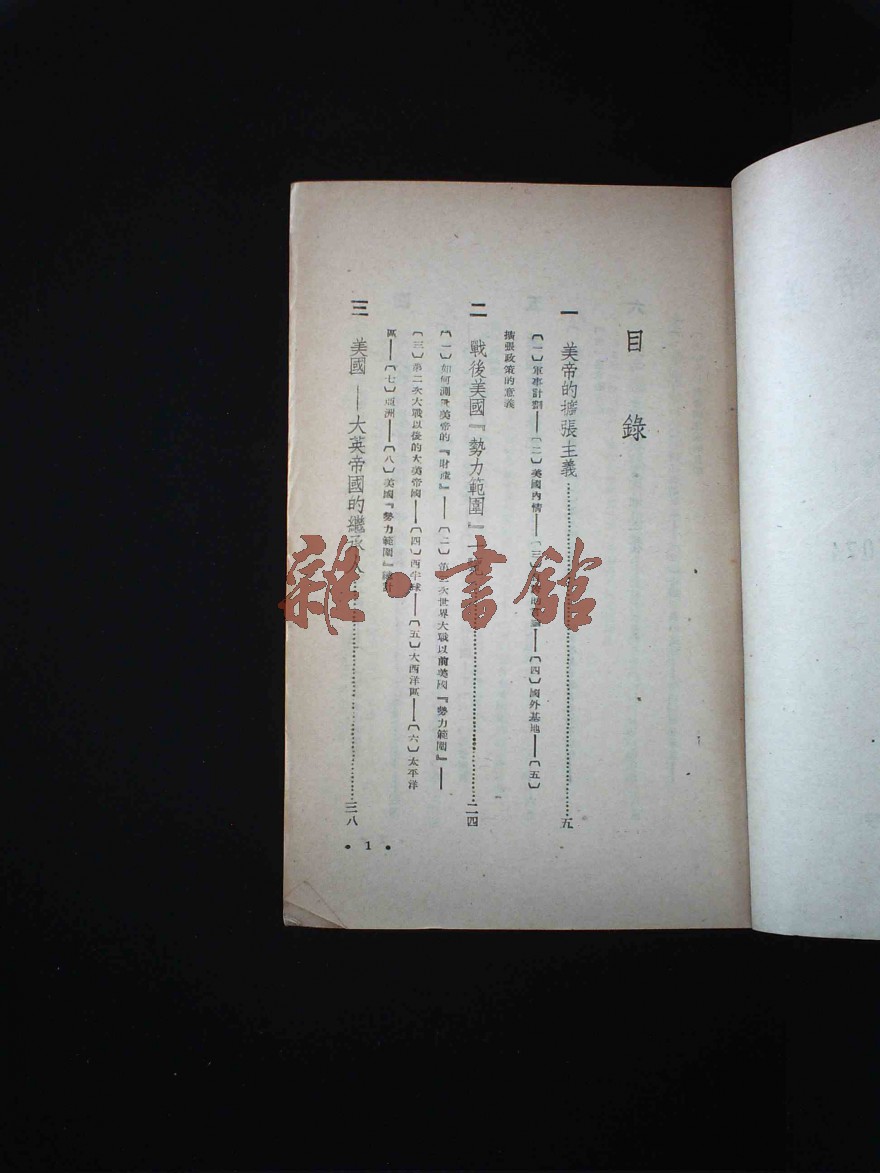 目錄
一 美帝的擴張主義……五
〔一〕軍事計劃——〔二〕美國內情——〔三〕——〔四〕國外基地——〔五〕
擴張政策的意義
二 戰後美國『勢力範圍』一……二四
〔一〕如何測量美帝的『財產』——〔二〕第次世界大戰以前美國『勢力範圍』——
〔三〕第二次大戰以後的大英帝國——〔四〕西半球——〔五〕大西洋區——〔六〕太平洋
區——〔七〕亞洲——〔八〕美國『勢力範圍』
三 美國——大英帝國的繼承人……三八
• 1 •
雜·書館